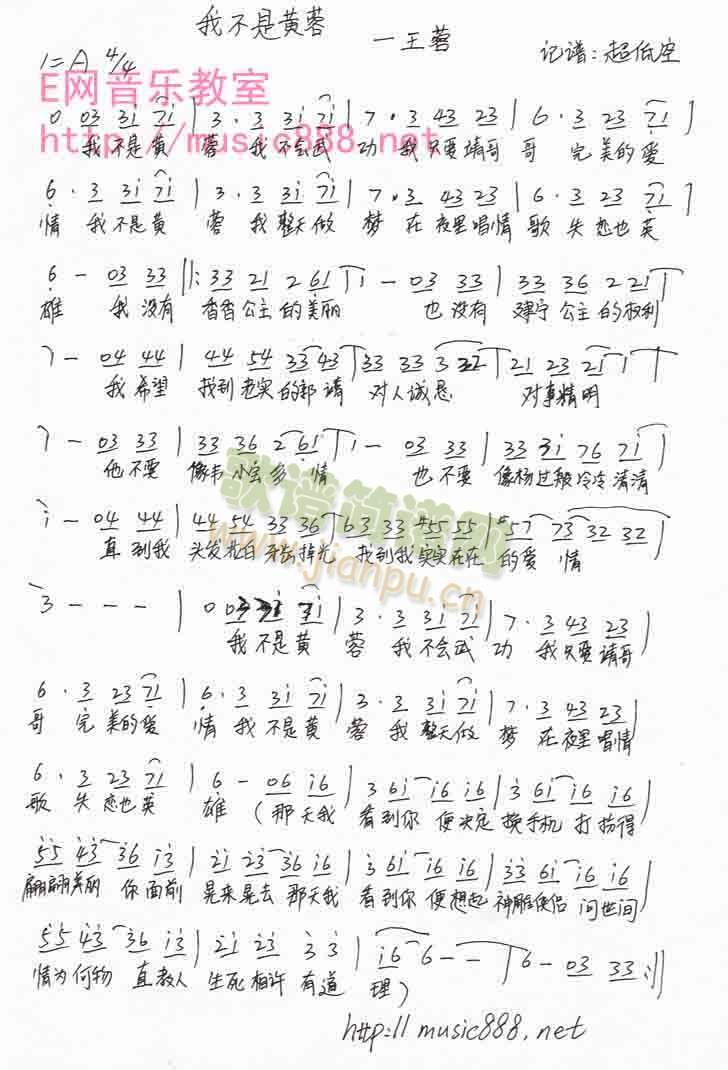 我不是黄蓉
—王蓉
记谱：超低空
1=A 4/4
E网音乐教室
http://music888.net
0 03 31 71 | 3 · 3 31 71 | 7 · 3 43 23 | 6 · 3 23 71 |
我不是黄 蓉 我不会武 功 我只要靖哥 哥 完美的爱
6 · 3 31 71 | 3 · 3 31 71 | 7 · 3 43 23 | 6 · 3 23 71 |
情 我不是黄 蓉 我整天做 梦 在夜里唱情 歌 失恋也英
6 - 03 33 ||: 33 21 2 61 | 1 - 03 33 | 33 36 2 21 |
雄 我没有 香香公主的美丽 也没有 建宁公主的权利
1 - 04 44 | 44 54 33 43 | 33 33 3 22 | 21 23 21 1 |
我希望 找到老实的郭靖 对人诚恳 对事精明
1 - 03 33 | 33 36 2 61 | 1 - 03 33 | 33 31 76 71 |
他不要 像韦小宝多情 也不要 像杨过般冷冷清清
1 - 04 44 | 44 54 33 36 | 63 33 #455 55 | #57 73 32 32 |
直到我 头发花白牙齿掉光 找到我实实在在 的爱情
3 - - - | 0 03 31 71 | 3 · 3 31 71 | 7 · 3 43 23 |
我不是黄 蓉 我不会武 功 我只要靖哥
6 · 3 23 71 | 6 · 3 31 71 | 3 · 3 31 71 | 7 · 3 43 23 |
哥 完美的爱 情 我不是黄 蓉 我整天做 梦 在夜里唱情
6 · 3 23 71 | 6 - 06 16 | 3 61 16 16 | 3 61 16 16 |
歌 失恋也英 雄 （那天我 看到你 便决定 换手机 打扮得
55 43 36 13 | 21 23 36 16 | 3 61 16 16 | 33 61 16 16 |
翩翩美丽 你面前 晃来晃去 那天我 看到你 便想起 神雕侠侣 问世间
55 43 36 13 | 21 23 3 3 | 16 6 - - | 6 - 03 33 :||
情为何物 直教人 生死相许 有道 理）
http://music888.net
歌谱简谱网
www.jianpu.cn